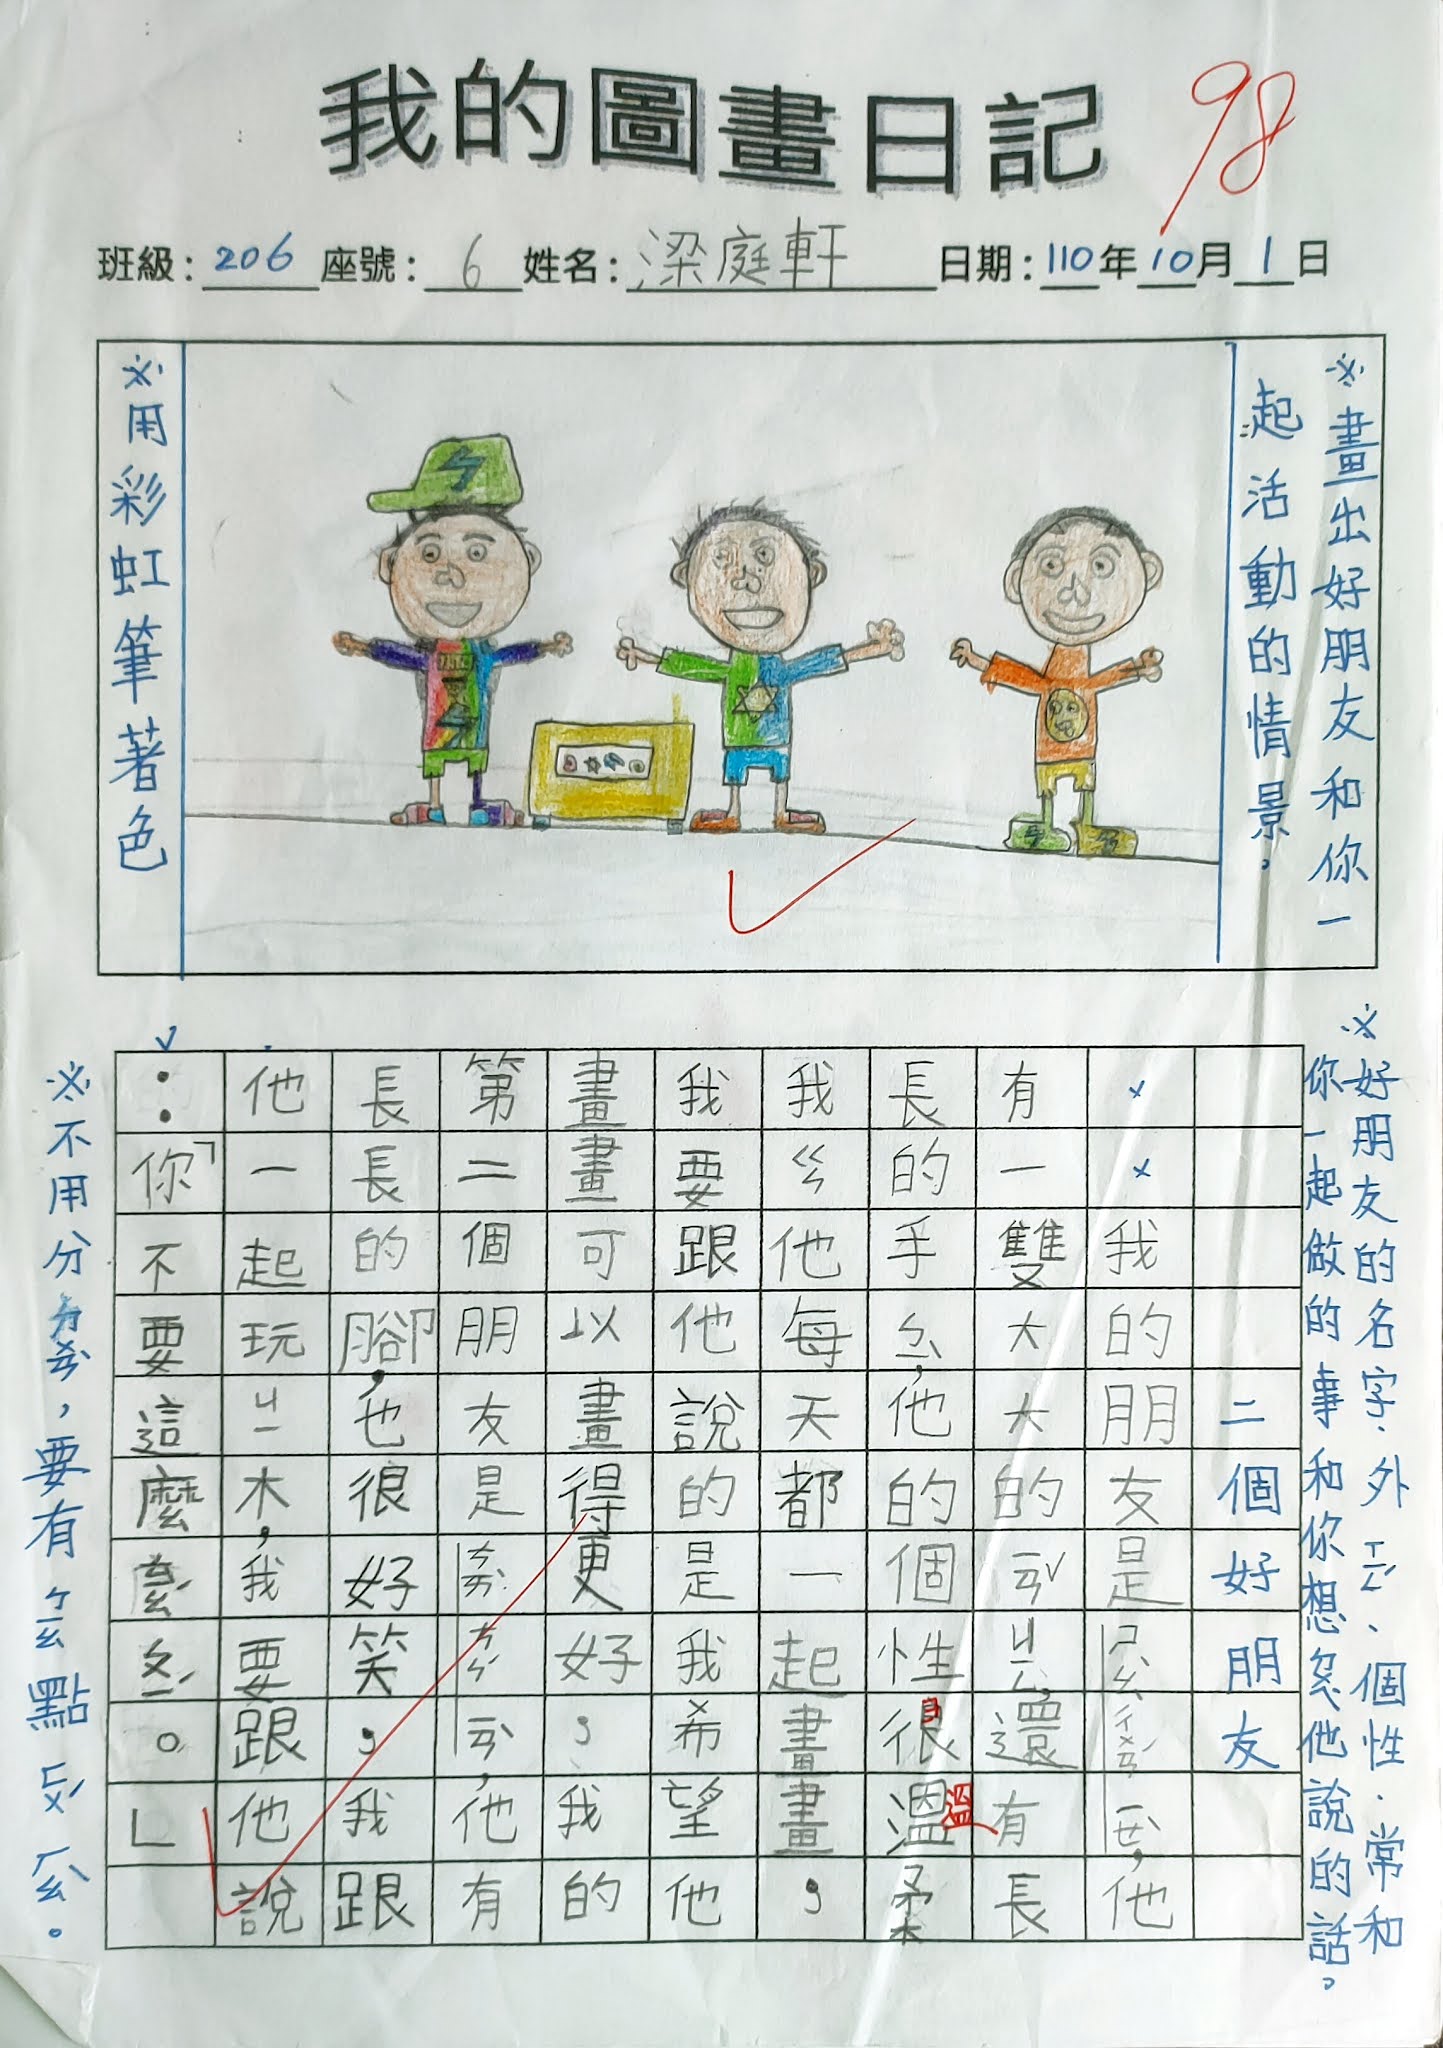 我的圖畫日記
98
班級:206 座號:6 姓名:梁庭軒 日期:110年10月1日
※畫出好朋友和你一
起活動的情景。
※用彩虹筆著色
※好朋友的名字、外ㄒㄧㄥˊ、個性、常和
你一起做的事和你想ㄍㄣ他說的話。
二個好朋友
××我的朋友是ㄖㄠˊㄔㄨㄢˊㄧㄝˋ,他
有一雙大大的ㄧㄢˇㄐㄧㄥ,還有長
長的手,他的個性很溫溫柔
我ㄍㄣ他每天都一起畫畫，
我要跟他說的是我希望他
畫畫可以畫得更好，我的
第二個朋友是,他有
長長的腳,也很好笑，我跟
他一起玩ㄐㄧ木,我要跟他說
：「你不要這麼ㄊㄧㄠˊㄆㄧˊ。」
※不用分ㄉㄨㄢˋ，要有ㄅㄧㄠ點ㄈㄨˊㄏㄠˋ。